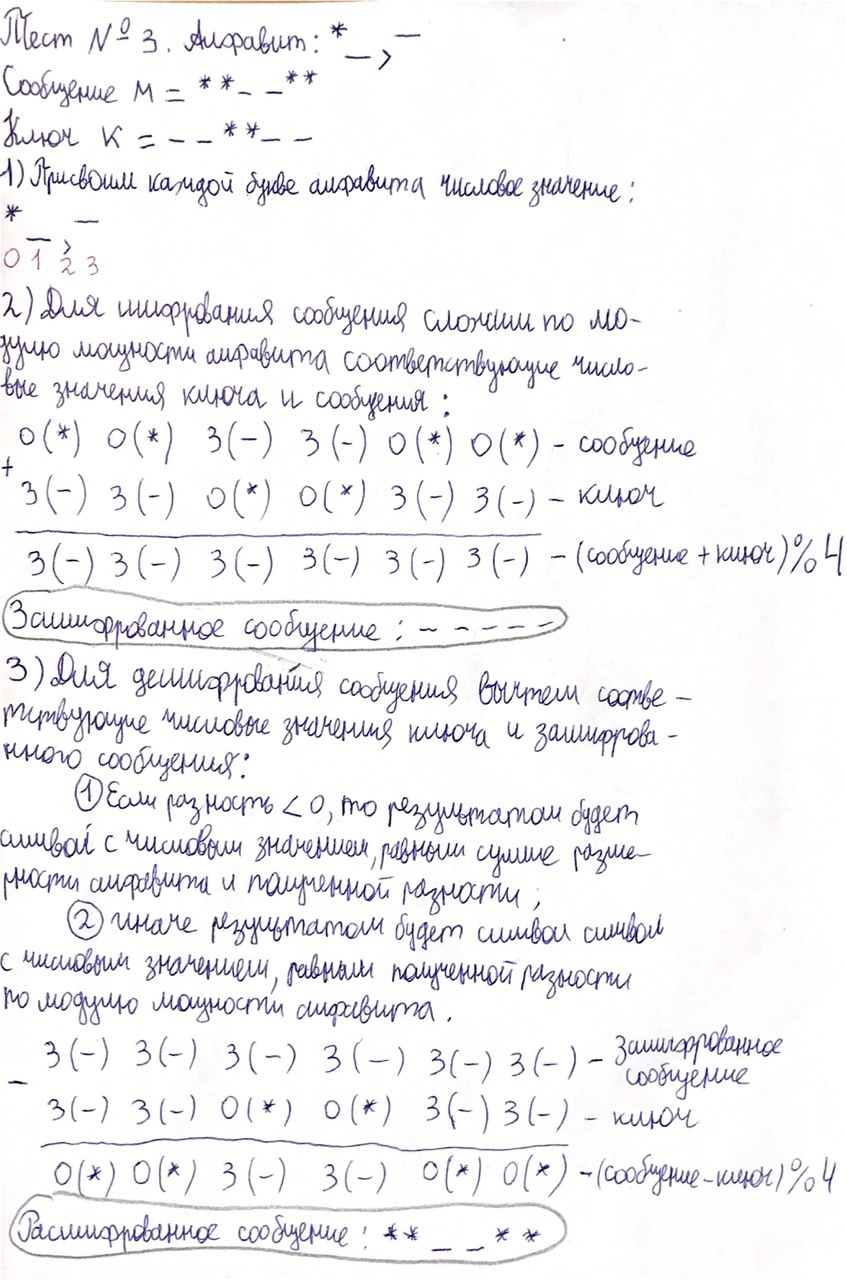 Тест № 3. Алфавит: * _ > –
Сообщение M = * * – – * *
Ключ K = – – * * – –
1) Присвоим каждой букве алфавита числовое значение:
* _ > –
0 1 2 3
2) Для шифрования сообщения сложим по мо-
дулю мощности алфавита соответствующие число-
вые значения ключа и сообщения:
0(*) 0(*) 3(–) 3(–) 0(*) 0(*) – сообщение
+
3(–) 3(–) 0(*) 0(*) 3(–) 3(–) – ключ
3(–) 3(–) 3(–) 3(–) 3(–) 3(–) – (сообщение + ключ) % 4
Зашифрованное сообщение: – – – – – –
3) Для дешифрования сообщения вычтем соотве-
тствующие числовые значения ключа и зашифрова-
нного сообщения:
① Если разность < 0, то результатом будет
символ с числовым значением, равным сумме разме-
рности алфавита и полученной разности;
② иначе результатом будет символ символ
с числовым значением, равным полученной разности
по модулю мощности алфавита.
3(–) 3(–) 3(–) 3(–) 3(–) 3(–) – зашифрованное
сообщение
–
3(–) 3(–) 0(*) 0(*) 3(–) 3(–) – ключ
0(*) 0(*) 3(–) 3(–) 0(*) 0(*) – (сообщение – ключ) % 4
Расшифрованное сообщение: * * _ _ * *